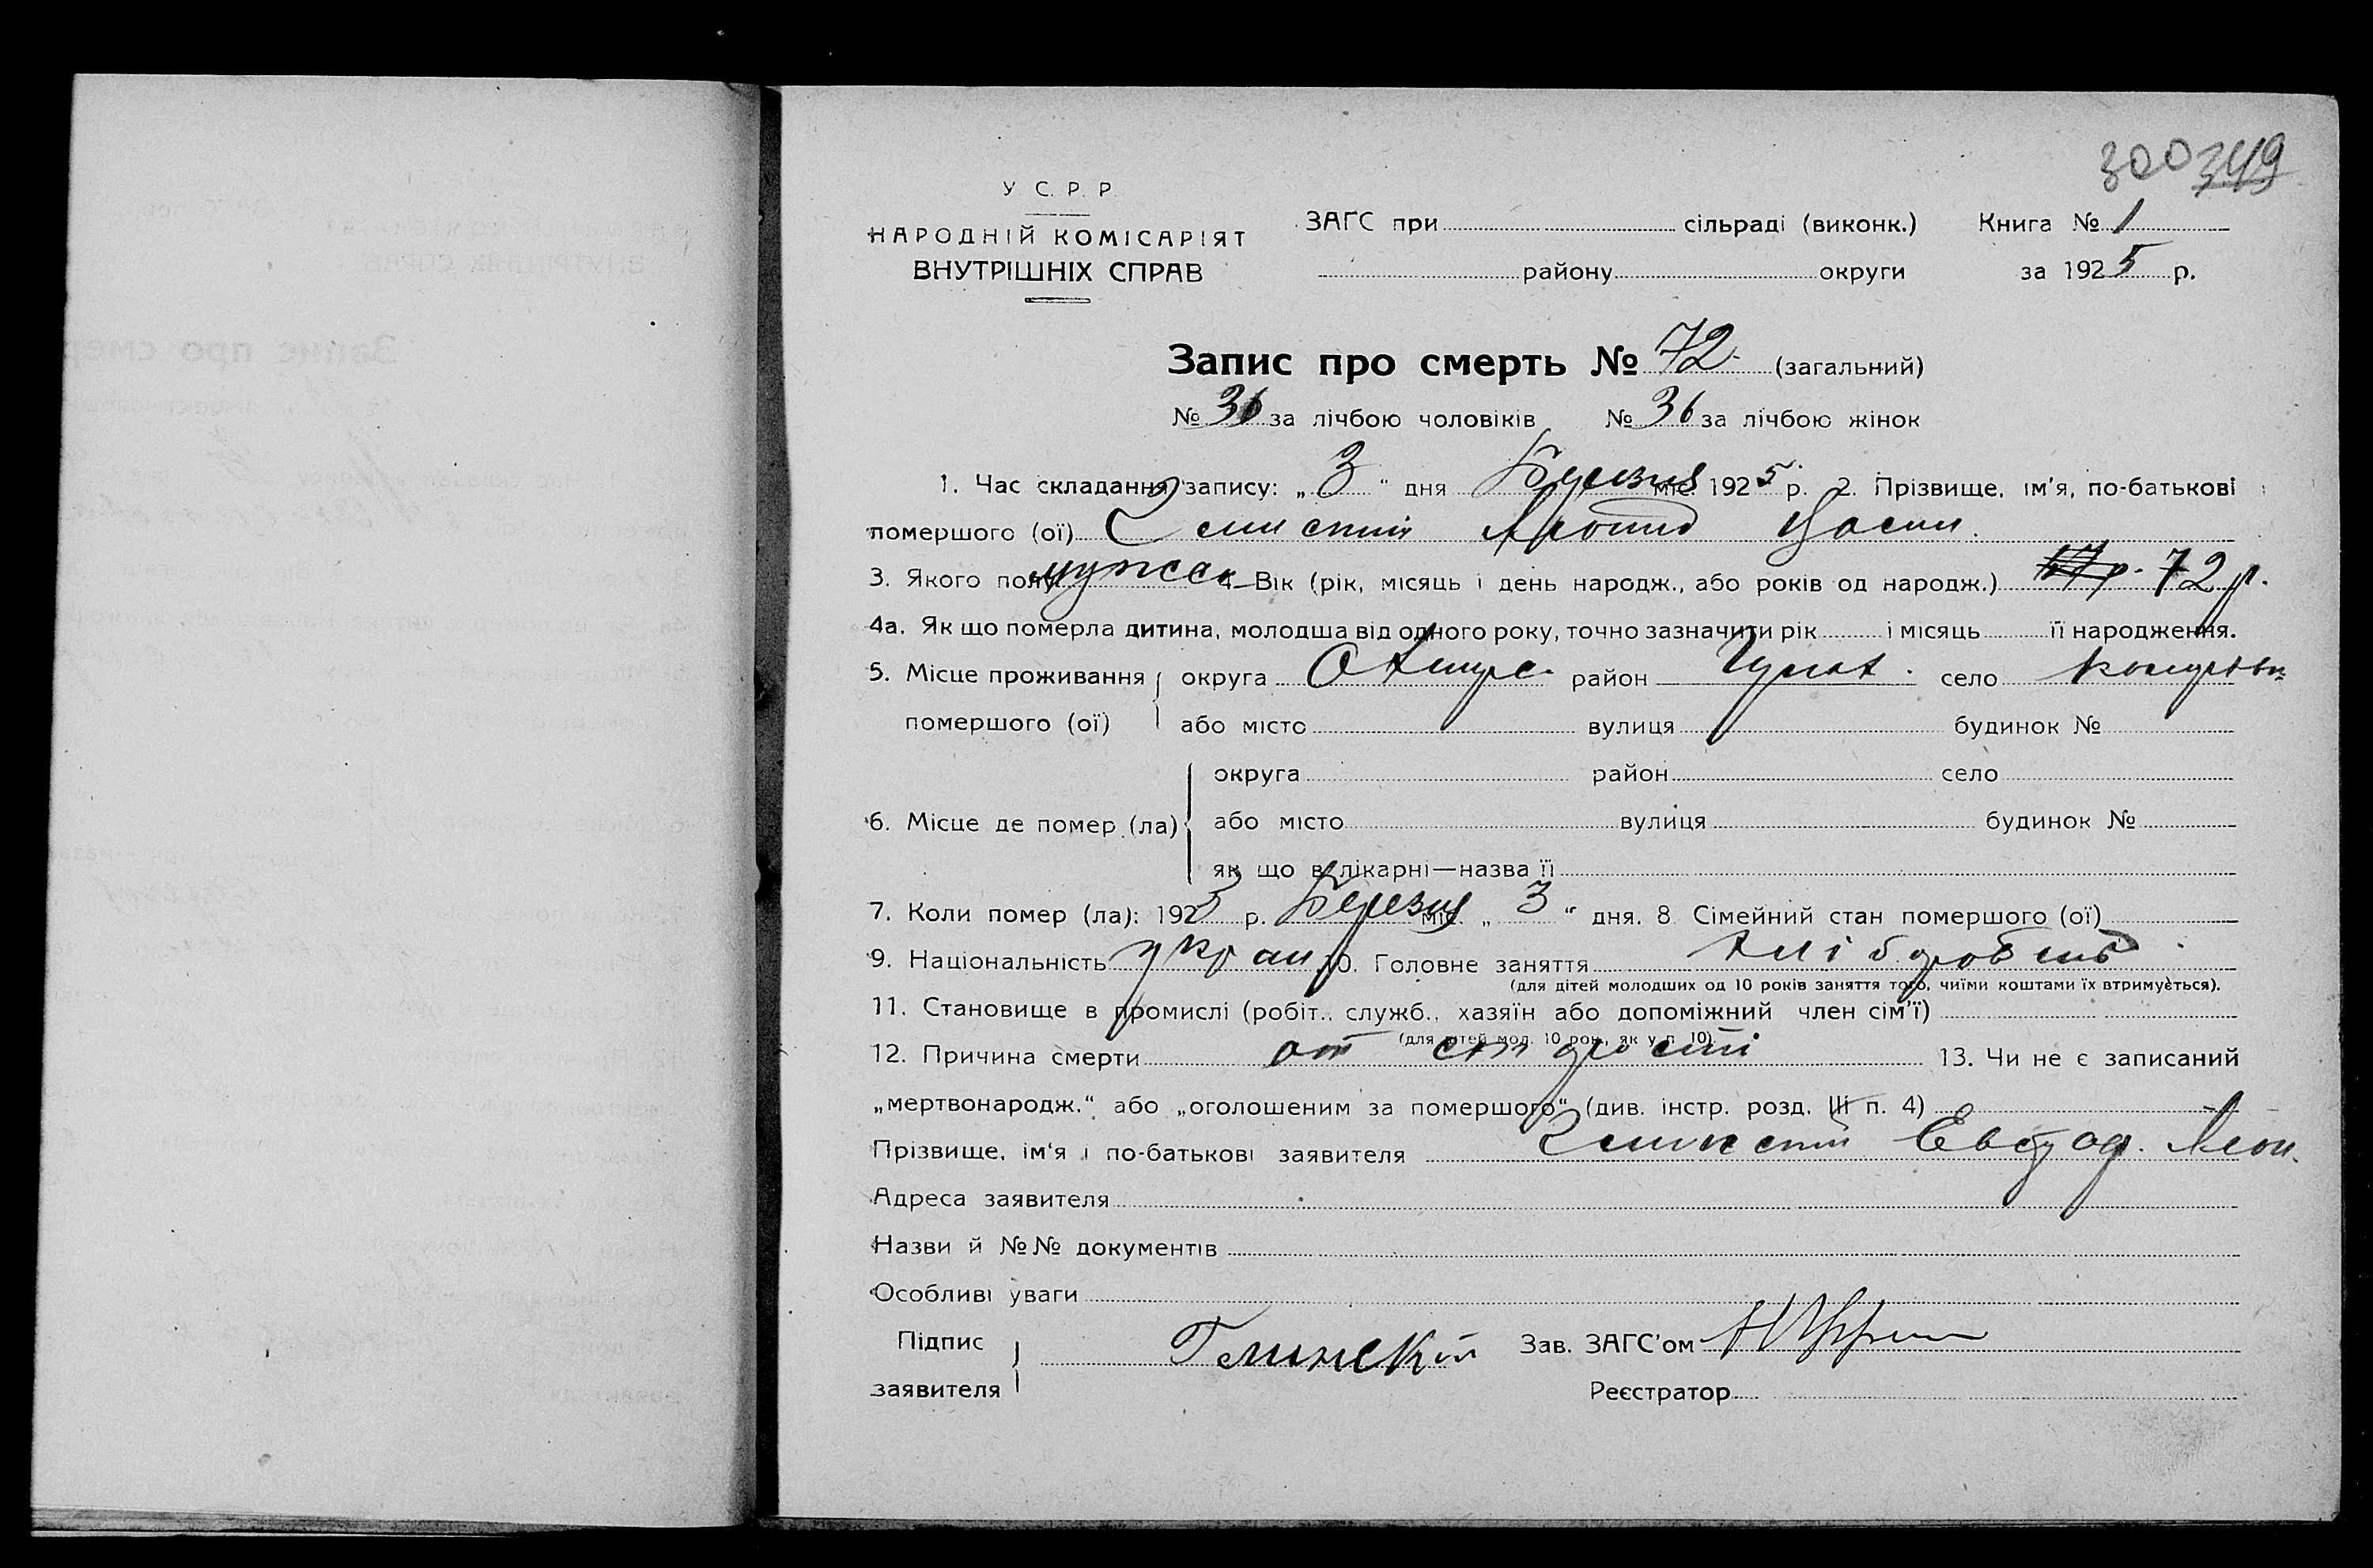 300 349
У С. Р. Р.
НАРОДНІЙ КОМІСАРІЯТ
ВНУТРІШНІХ СПРАВ
ЗАГС при сільраді (виконк.) Книга № 1
району округи за 1925 р.
Запис про смерть № 72 (загальний)
№ 36 за лічбою чоловіків № 36 за лічбою жінок
1. Час складання запису: „3“ дня Березня міс. 1925 р. 2. Прізвище, ім'я, по-батькові
помершого (ої)
3. Якого полу мужеск 4. Вік (рік, місяць і день народж., або років од народж.) 72 р.
4а. Як що померла дитина, молодша від одного року, точно зазначити рік і місяць її народження.
5. Місце проживання округа район село
помершого (ої) або місто вулиця будинок №
округа район село
6. Місце де помер (ла) або місто вулиця будинок №
як що в лікарні—назва її
7. Коли помер (ла): 1925 р. Березня міс. „3“ дня. 8 Сімейний стан помершого (ої)
9. Національність укр 10. Головне заняття хлібороб
(для дітей молодших од 10 років заняття того, чиїми коштами їх втримується).
11. Становище в промислі (робіт., служб., хазяїн або допоміжний член сім'ї)
(для дітей мол. 10 рок., як у п. 10)
12. Причина смерти от старості 13. Чи не є записаний
„мертвонародж.“ або „оголошеним за помершого“ (див. інстр. розд. ІІІ п. 4)
Прізвище, ім'я і по-батькові заявителя
Адреса заявителя
Назви й №№ документів
Особливі уваги
Підпис Глинский Зав. ЗАГС'ом
заявителя Реєстратор